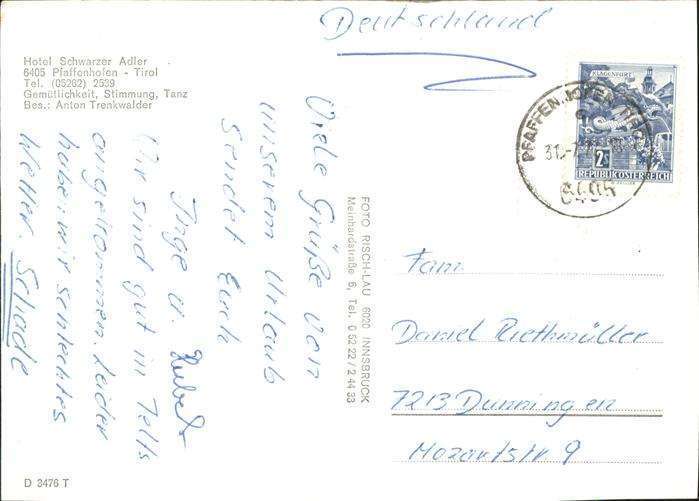 Deutschland
Hotel Schwarzer Adler
6405 Pfaffenhofen - Tirol
Tel. (05262) 2539
Gemütlichkeit, Stimmung, Tanz
Bes.: Anton Trenkwalder
Viele Grüße von
unserem Urlaub
sendet Euch
Inge u. Hubert
Wir sind gut in Telfs
angekommen. Leider
haben wir schlechtes
Wetter. Schade
FOTO RISCH-LAU 6020 INNSBRUCK
Meinhardstraße 6, Tel. 0 52 22 / 2 44 33
KLAGENFURT
2 S
REPUBLIK ÖSTERREICH
6405
Fam.
Daniel Riethmüller
7213 Dunningen
Mozartstr 9
D 2476 T